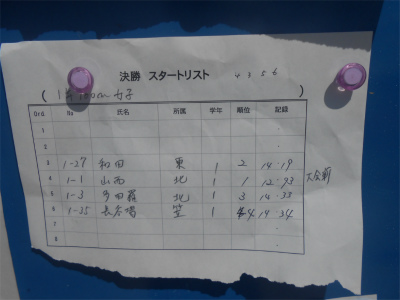 決勝 スタートリスト 4 3 5 6
( 1年 100m 女子 )
Ord. No 氏名 所属 学年 順位 記録
1
2
3 1-27 和田 東 1 2 14.19
4 1-1 山西 北 1 1 12.93 大会新
5 1-3 多田羅 北 1 3 14.33
6 1-35 長谷場 笠 1 4 14.34
7
8